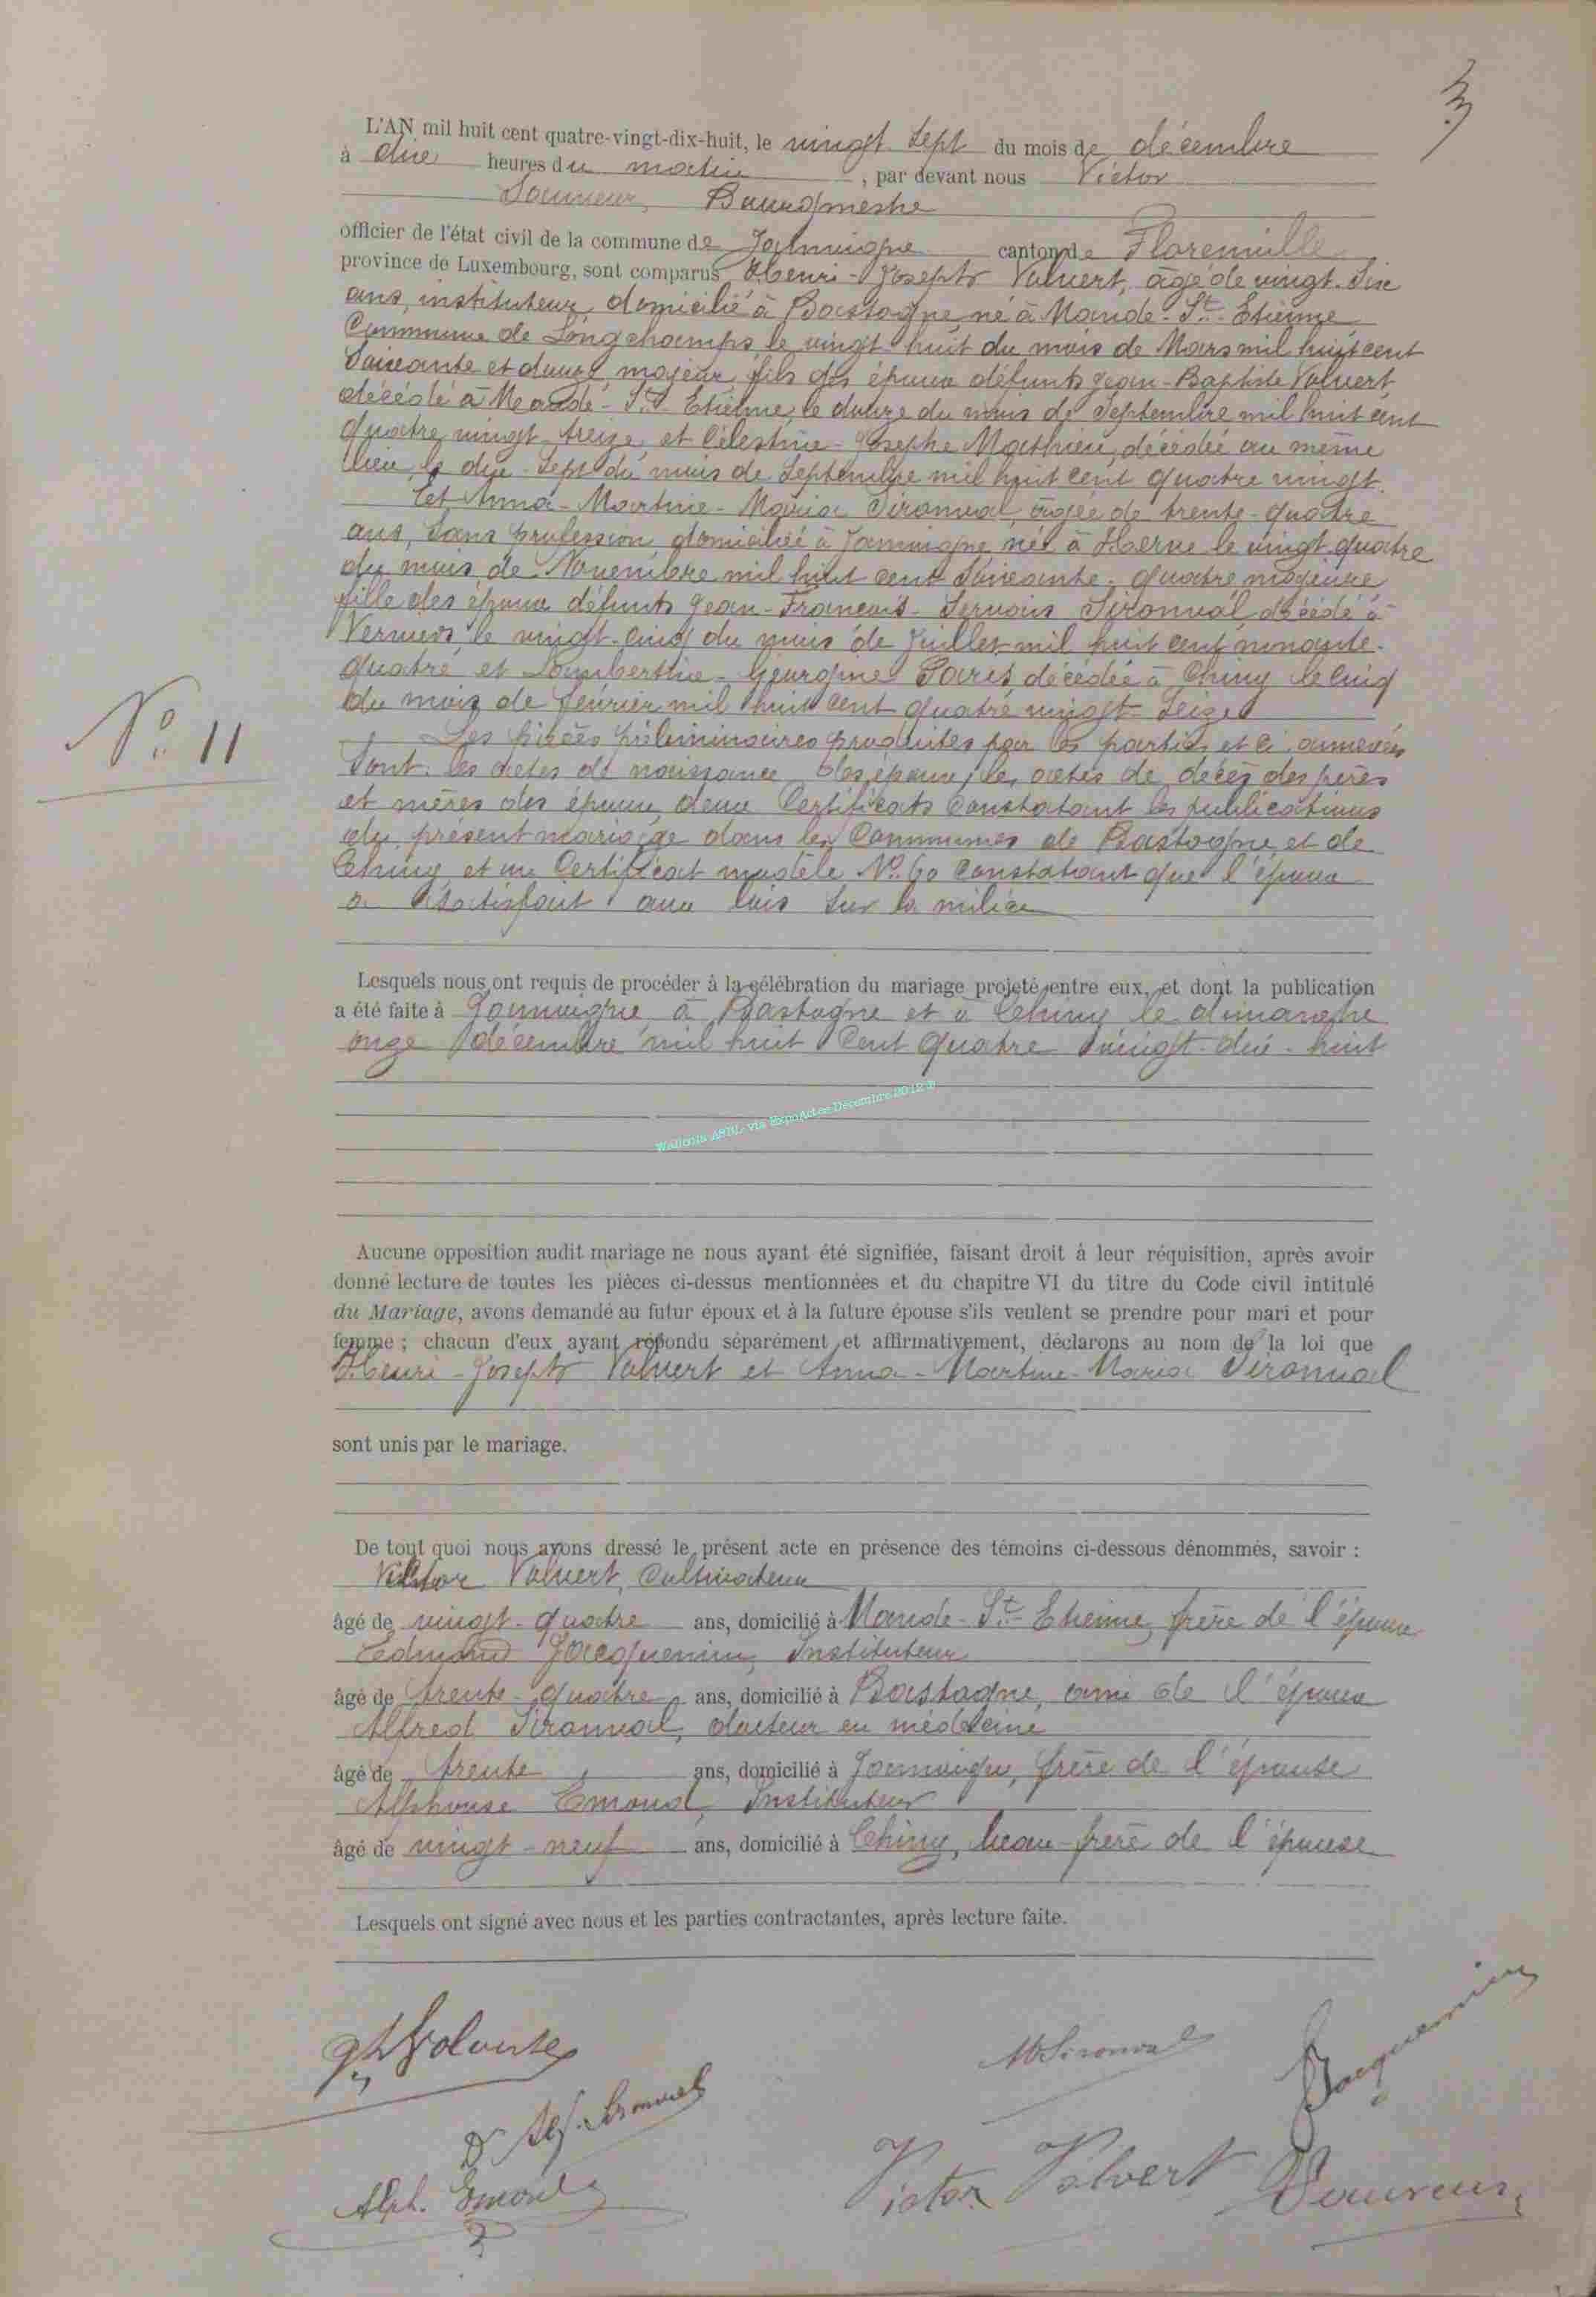 3
L'AN mil huit cent quatre-vingt-dix-huit, le vingt sept du mois de décembre
à dix heures du matin, par devant nous Victor
Bourgmestre
officier de l'état civil de la commune de Jamoigne canton de Florenville
province de Luxembourg, sont comparus Henri-Joseph Volvert, âgé de vingt-six
ans, instituteur, domicilié à Bastogne, né à Mande-St-Etienne
Commune de Longchamps, le vingt-huit du mois de Mars mil huit cent
soixante et douze, majeur, fils des époux défunts Jean-Baptiste Volvert,
décédé à Mande-St-Etienne, le douze du mois de Septembre mil huit cent
quatre vingt-treize, et Célestine-Josephe Mathieu, décédée au même
lieu, le dix-sept du mois de Septembre mil huit cent quatre vingt.
Et Anna-Martine-Maria Sironval, âgée de trente-quatre
ans, sans profession, domiciliée à Jamoigne, née à Herve le vingt quatre
du mois de Novembre mil huit cent soixante-quatre, majeure
fille des époux défunts Jean-François-Servais Sironval décédé à
Verviers le vingt-cinq du mois de Juillet mil huit cent nonante-
quatre et Lambertine-Georgine décédée à Chiny le cinq
du mois de février mil huit cent quatre vingt-seize
Les pièces préliminaires produites par les parties et ci annexées
sont: les actes de naissance des époux, les actes de décès des pères
et mères des époux, deux Certificats constatant les publications
du présent mariage dans les Communes de Bastogne et de
Chiny et un Certificat modèle No 60 constatant que l'époux
a satisfait aux lois sur la milice
No 11
Lesquels nous ont requis de procéder à la célébration du mariage projeté entre eux, et dont la publication
a été faite à Jamoigne à Bastogne et à Chiny le dimanche
onze décembre mil huit cent quatre vingt-dix-huit
Wallonia ASBL via ExpoActes Decembre 2012
Aucune opposition audit mariage ne nous ayant été signifiée, faisant droit à leur réquisition, après avoir
donné lecture de toutes les pièces ci-dessus mentionnées et du chapitre VI du titre du Code civil intitulé
du Mariage, avons demandé au futur époux et à la future épouse s'ils veulent se prendre pour mari et pour
femme ; chacun d'eux ayant répondu séparément et affirmativement, déclarons au nom de la loi que
Henri-Joseph Volvert et Anna-Martine-Maria Sironval
sont unis par le mariage.
De tout quoi nous avons dressé le présent acte en présence des témoins ci-dessous dénommés, savoir :
Victor Volvert, Cultivateur
âgé de vingt-quatre ans, domicilié à Mande-St-Etienne, frère de l'époux
Edmond Jacquemin, Instituteur
âgé de trente-quatre ans, domicilié à Bastogne, ami de l'époux
Alfred Sironval, docteur en médecine
âgé de trente ans, domicilié à Jamoigne, frère de l'épouse
Alphonse Emond, Instituteur
âgé de vingt-neuf ans, domicilié à Chiny, beau-frère de l'épouse
Lesquels ont signé avec nous et les parties contractantes, après lecture faite.
M Sironval
Jacquemin
Dr Alf. Sironval
Victor Volvert
Alph. Emond